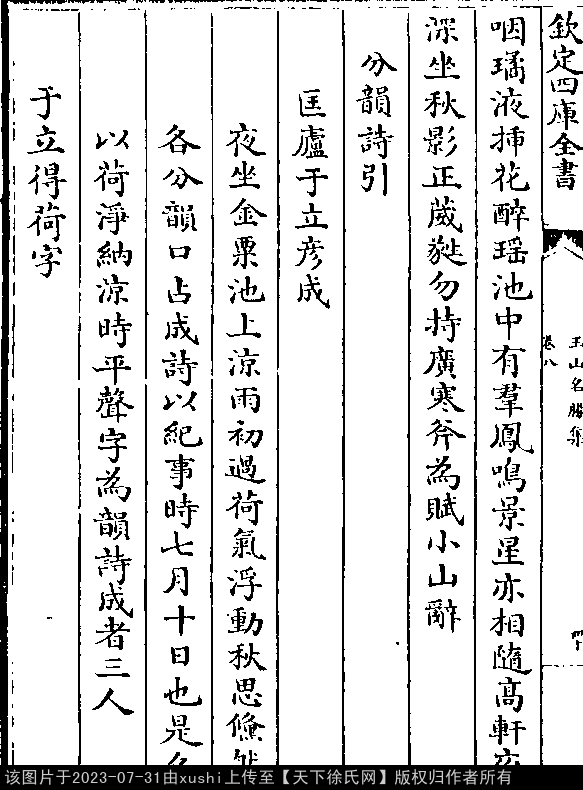 欽定四庫全書
玉山名勝集
卷八
咽璚液揷花醉瑶池中有羣鳳鳴景星亦相隨高軒
深坐秋影正葳蕤勿持廣寒斧為賦小山辭
分韻詩引
匡廬于立彦成
夜坐金粟池上涼雨初過荷氣浮動秋思翛然
各分韻口占成詩以紀事時七月十日也是
以荷淨納涼時平聲字為韻詩成者三人
于立得荷字
该图片于2023-07-31由xushi上传至【天下徐氏网】版权归作者所有